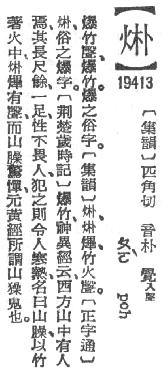 【烞】
19413
〔集韻〕匹角切 音朴 覺入聲
ㄆㄛˋ poh
爆竹聲。爆竹之俗字。〔集韻〕烞、烞熚、竹火聲。〔正字通〕
烞、俗爆字。〔荊楚歲時記〕爆竹、神異經云、西方山中有人
焉、其長尺餘、一足、性不畏人、犯之則令人寒熱、名曰山臊、以竹
著火中、烞熚有聲、而山臊驚憚、元黃經所謂山獋鬼也。